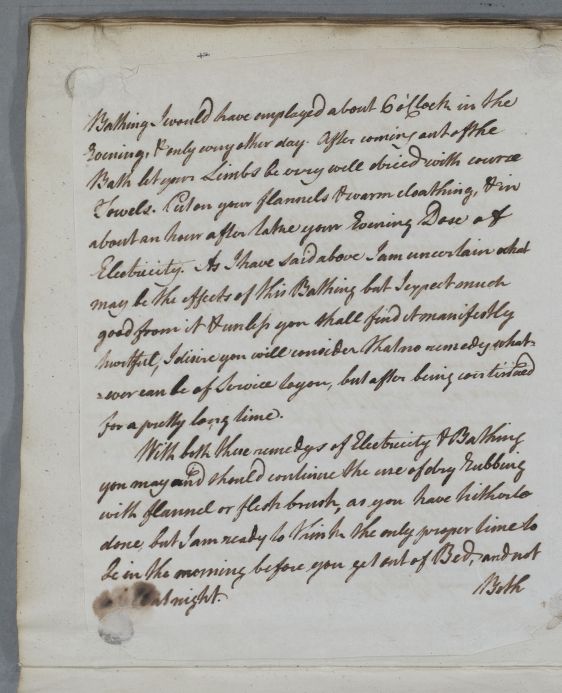 Bathing I would have employed about 6 o'Clock in the
Evening, & only every other day. After coming out of the
Bath let your Limbs be very well driced with course
Towels. Put on your flannels & warm cloathing, & in
about an hour after take your Evening Dose of
Electricity. As I have said above I am uncertain what
may be the effects of this Bathing but I expect much
good from it & unless you shall find it manifestly
hurtful, I desire you will consider that no remedy what-
-ever can be of Service to you, but after being continued
for a pretty long time.
With both these remedys of Electricity & Bathing
you may and should continue the use of dry Rubbing
with flannel or flesh brush, as you have hitherto
done, but I am ready to think the only proper time to
be in the morning before you get out of Bed, and not
at night.
Both